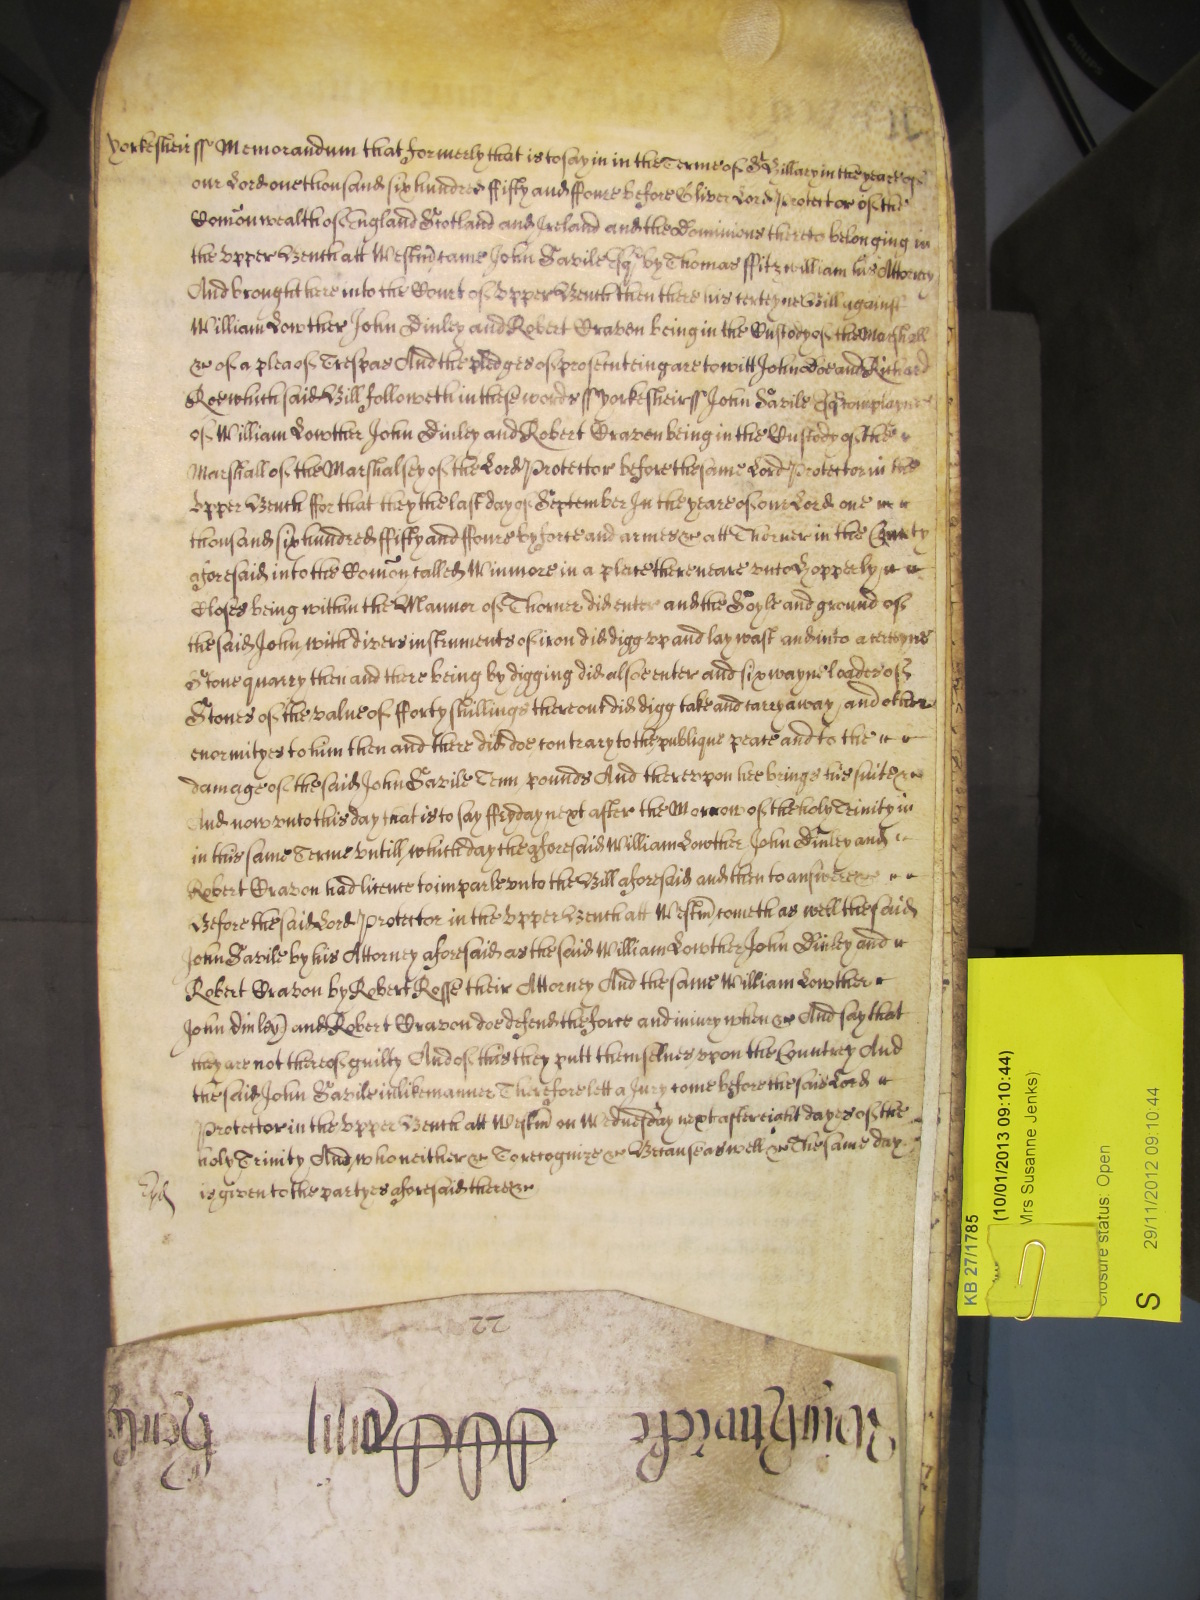 Yorkesheir ss Memorandum that formerly that is to say in in the Terme of St Hillary in the yeare of
our Lord one thousand six hundred fiffty and ffoure before Oliver Lord Protector of the
Comon wealth of England Scotland and Ireland and the Dominions thereto belonging in
the upper Bench att Westm came John Savile Esqr by Thomas ffitzwilliam his Attorney
And brought here into the Court of upper Bench then there his certeyne Bill against
William Lowther John Dinley and Robert Craven being in the Custody of the Marshall
&c of a plea of Trespas And the pledges of prosecuteing are to witt John Doe and Richard
Roe which said Bill followeth in these words ss Yorkesheir ss John Savile Esqr complaynes
of William Lowther John Dinley and Robert Craven being in the Custody of the
Marshall of the Marshalsey of the Lord Protector before the same Lord Protector in the
upper Bench ffor that they the last day of September In the yeare of our Lord one
thousand six hundred ffiffty and ffoure by force and armes &c att Thorner in the County
aforesaid into the Comon called Winmore in a place there neare unto
Closes being within the Mannor of Thorner did enter and the Soyle and ground of
the said John with divers instruments of iron did digg up and lay wast and into a certeyne
Stone quarry then and there being by digging did alsoe enter and six wayne loades of
Stones of the value of fforty shillings thereout did digg take and carry away and other
enormityes to him then and there did doe contrary to the publique peace and to the
damage of the said John Savile Tenn pounds And thereupon hee brings his suite &c
And now unto this day that is to say ffryday next after the Morrow of the holy Trinity in
in this same Terme untill which day the aforesaid William Lowther John Dinley and
Robert Craven had licence to imparle unto the Bill aforesaid and then to answere &c
Before the said Lord Protector in the upper Bench att Westm cometh as well the said
John Savile by his Attorney aforesaid as the said William Lowther John Dinley and
Robert Craven by Robert Rosse their Attorney And the same William Lowther
John Dinley and Robert Craven doe defend the force and iniury when &c And say that
they are not thereof guilty And of this they putt themselves upon the Countrey And
the said John Savile in like manner Therefore lett a Jury come before the said Lord
Protector in the upper Bench att Westm on Wednesday next after eight dayes of the
holy Trinity And who neither &c To recognize &c Because as well &c The same day
is given to the partyes aforesaid there &c
22
KB 27/1785
(10/01/2013 09:10:44)
Mrs Susanne Jenks)
Closure status: Open
29/11/2012 09:10:44
S